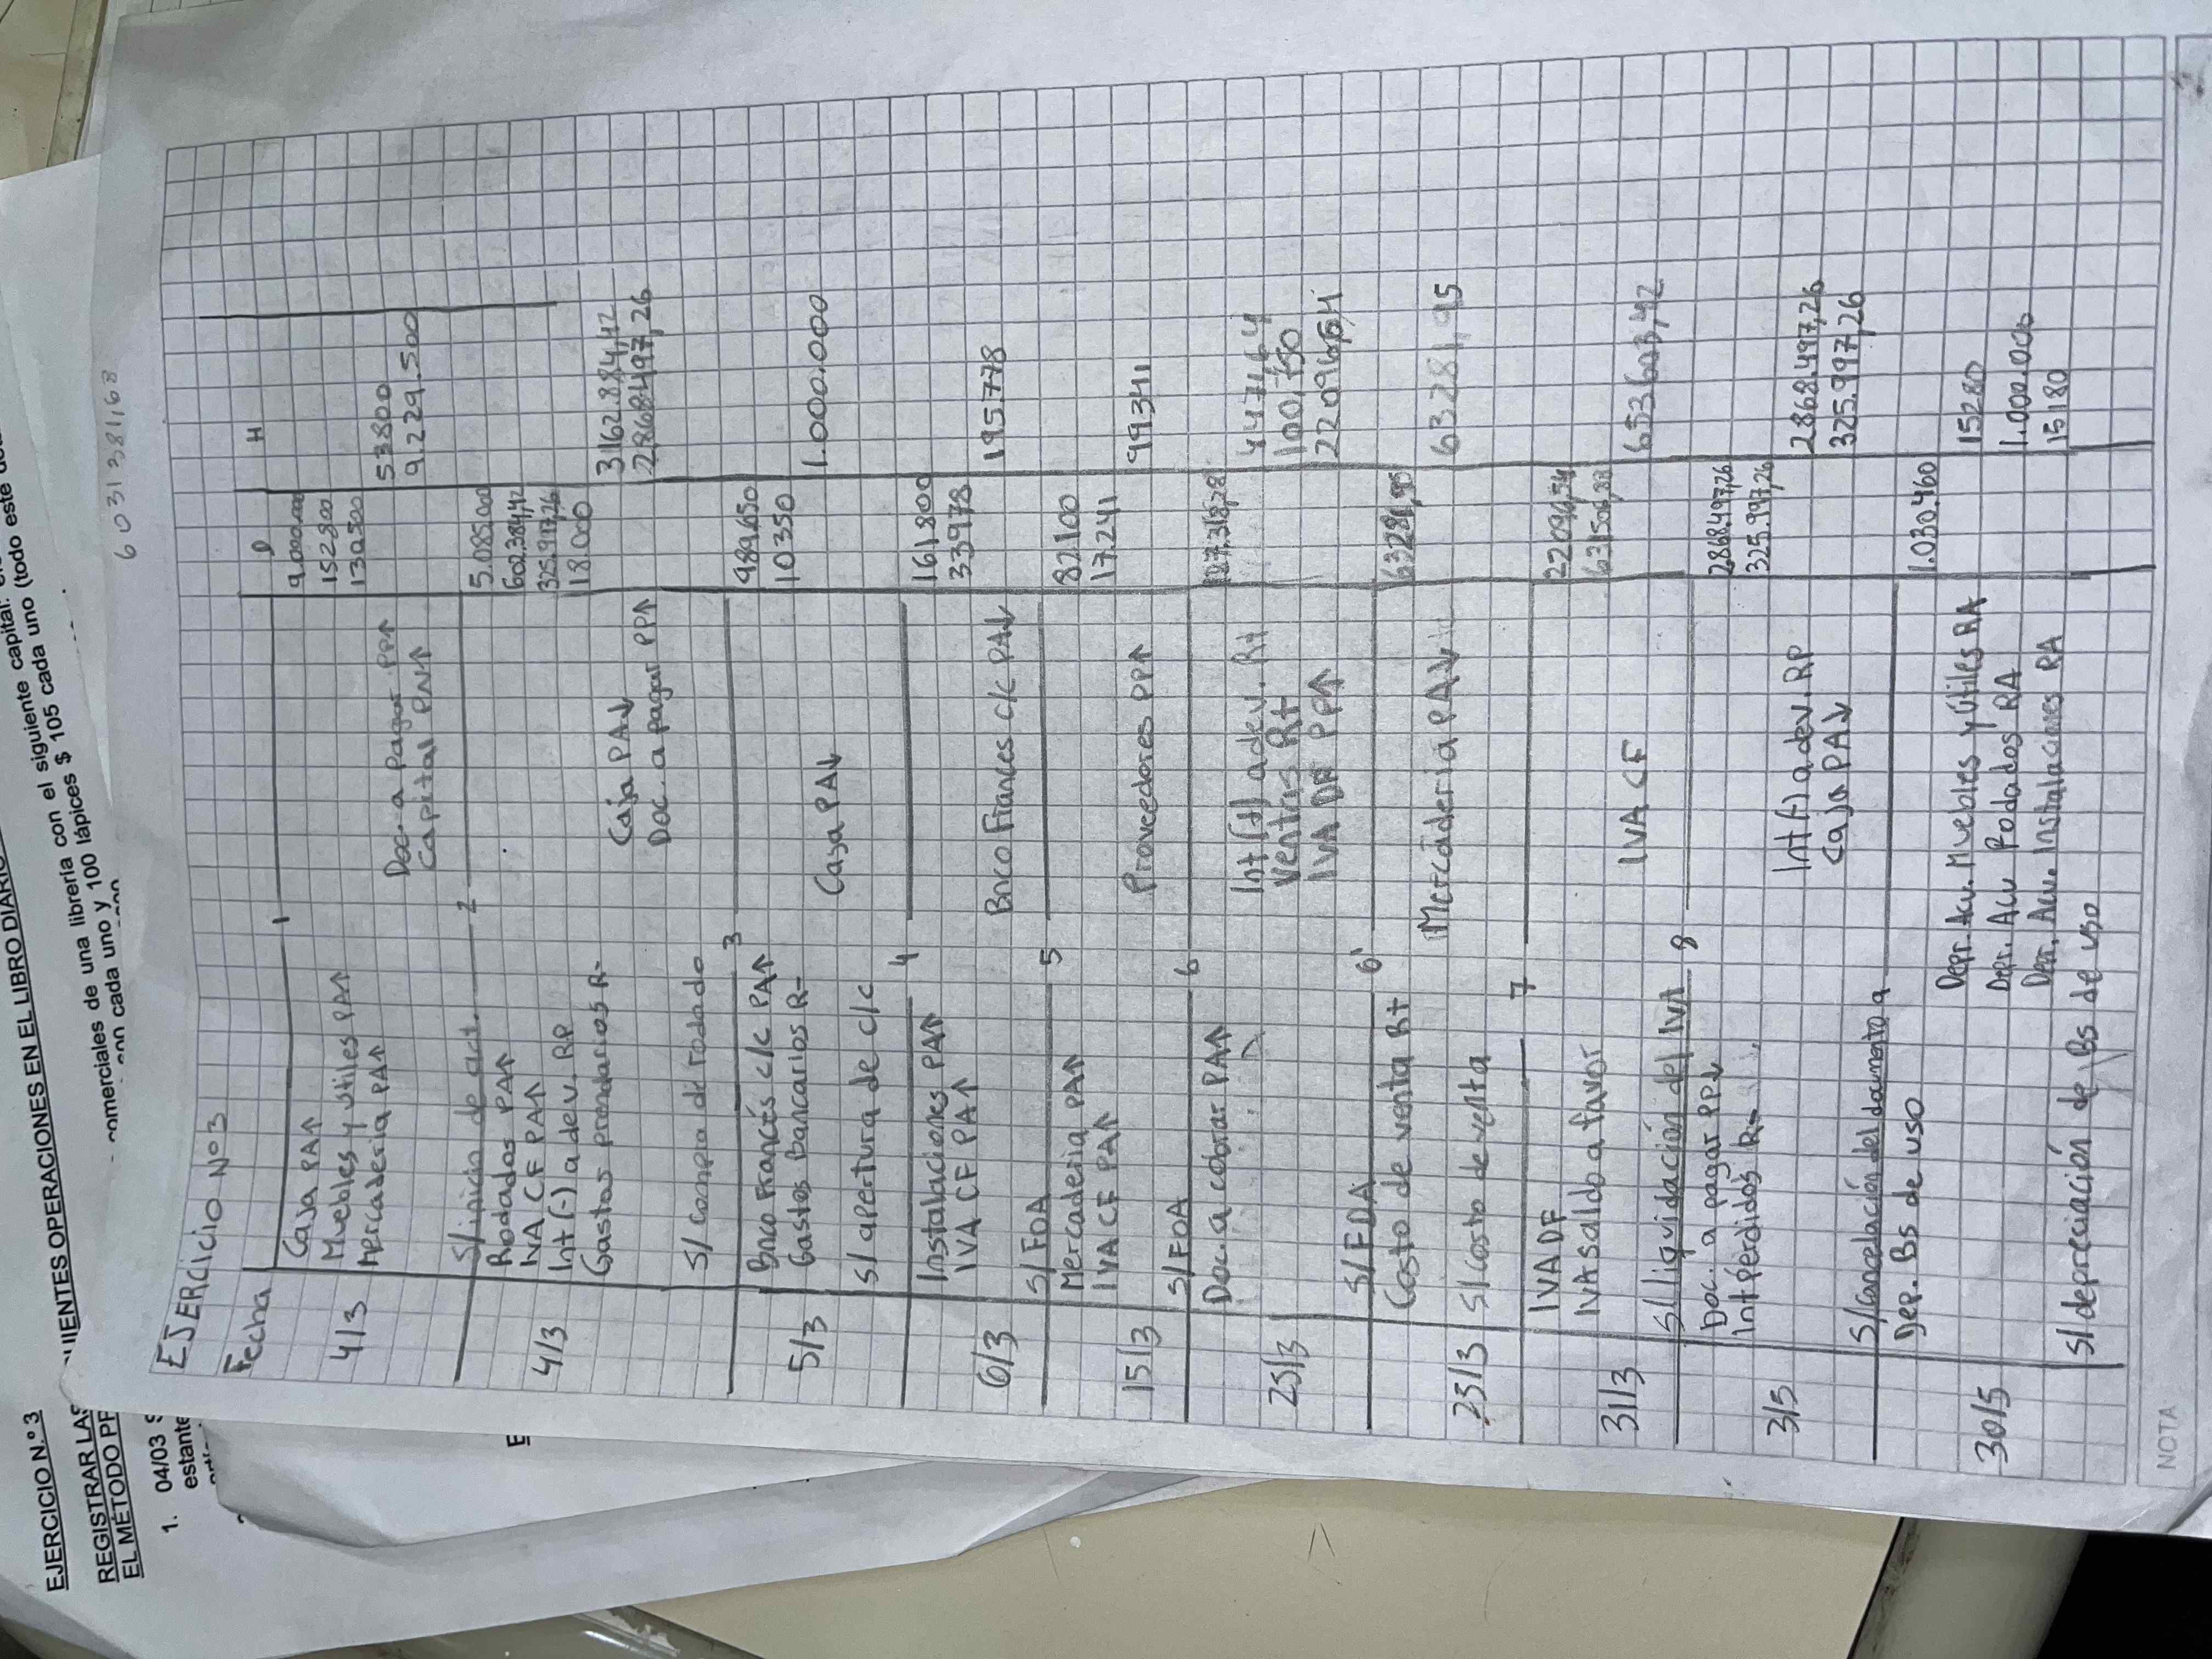 EJERCICIO N.º 3
REGISTRAR LAS
IENTES OPERACIONES EN EL LIBRO DIARIO
EL MÉTODO PE
1. 04/03
comerciales de una librería con el siguiente capital:
estante
cada uno y 100 lápices $ 105 cada uno (todo este
cada uno
603138116B
EJERCICIO Nº3
Fecha D H
1
4/3 Caja PA↑ 9.000.000
Muebles y Utiles PA↑ 152.800
Mercadería PA↑ 130.500
Doc. a Pagar PP↑ 53800
Capital PN↑ 9.229.500
S/ inicio de act. 2
4/3 Rodados PA↑ 5.085.000
IVA CF PA↑ 602.384,42
Int (-) a dev. RP 325.997,26
Gastos prendarios R- 18.000
Caja PA↓ 3162.884,42
Doc. a pagar PP↑ 2868497,26
S/ compra de rodado
3
5/3 Bnco Francés c/c PA↑ 989.650
Gastos Bancarios R- 10350
Caja PA↓ 1.000.000
S/ apertura de c/c
4
6/3 Instalaciones PA↑ 161.800
IVA CF PA↑ 33.978
Bnco Frances c/c PA↓ 195.778
S/ FDA 5
15/3 Mercaderia PA↑ 82.100
IVA CF PA↑ 17.241
Proveedores PP↑ 99341
S/ FDA 6
25/3 Doc. a cobrar PA↑ 127.318,28
Int (+) a dev. R+ 4471,64
Ventas R+ 100.750
IVA DF PP↑ 22096,64
S/ FDA 6'
25/3 Costo de venta R+ 63281,95
Mercaderia PA↓ 63281,95
S/ Costo de venta
7
31/3 IVA DF 22096,54
IVA saldo a favor 631506,88
IVA CF 653603,42
S/ liquidación del IVA 8
3/5 Doc. a pagar PP↓ 2868.497,26
Int Perdidos R- 325.997,26
Int (-) a dev. RP 2868.497,26
Caja PA↓ 325.997,26
S/ Cancelación del documento 9
30/5 Dep. Bs de uso 1.030.460
Depr. Acu. Muebles y Utiles RA 15280
Depr. Acu Rodados RA 1.000.000
Dep. Acu. Instalaciones RA 15180
S/ depreciación de Bs de uso
NOTA